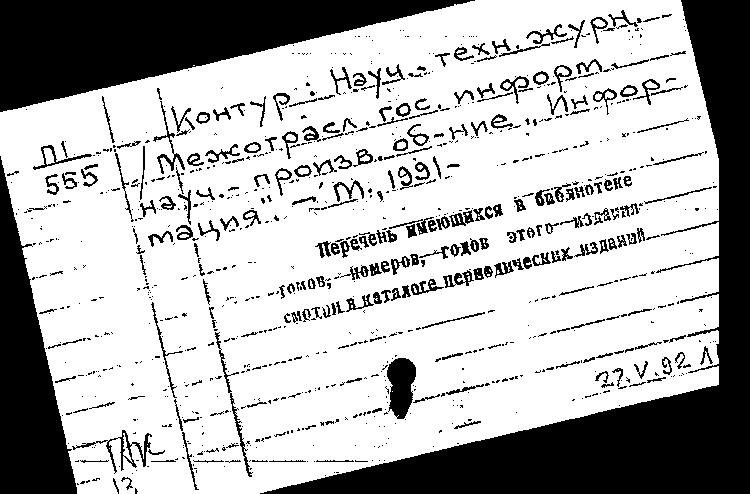 П1
555
Контур: Науч.-техн. журн.
/Межотрасл. гос. информ.
науч.-произв. об-ние „Инфор-
мация". – М., 1991–
Перечень имеющихся в библиотеке
томов, номеров, годов этого издания
смотри в каталоге периодических изданий
27.V.92